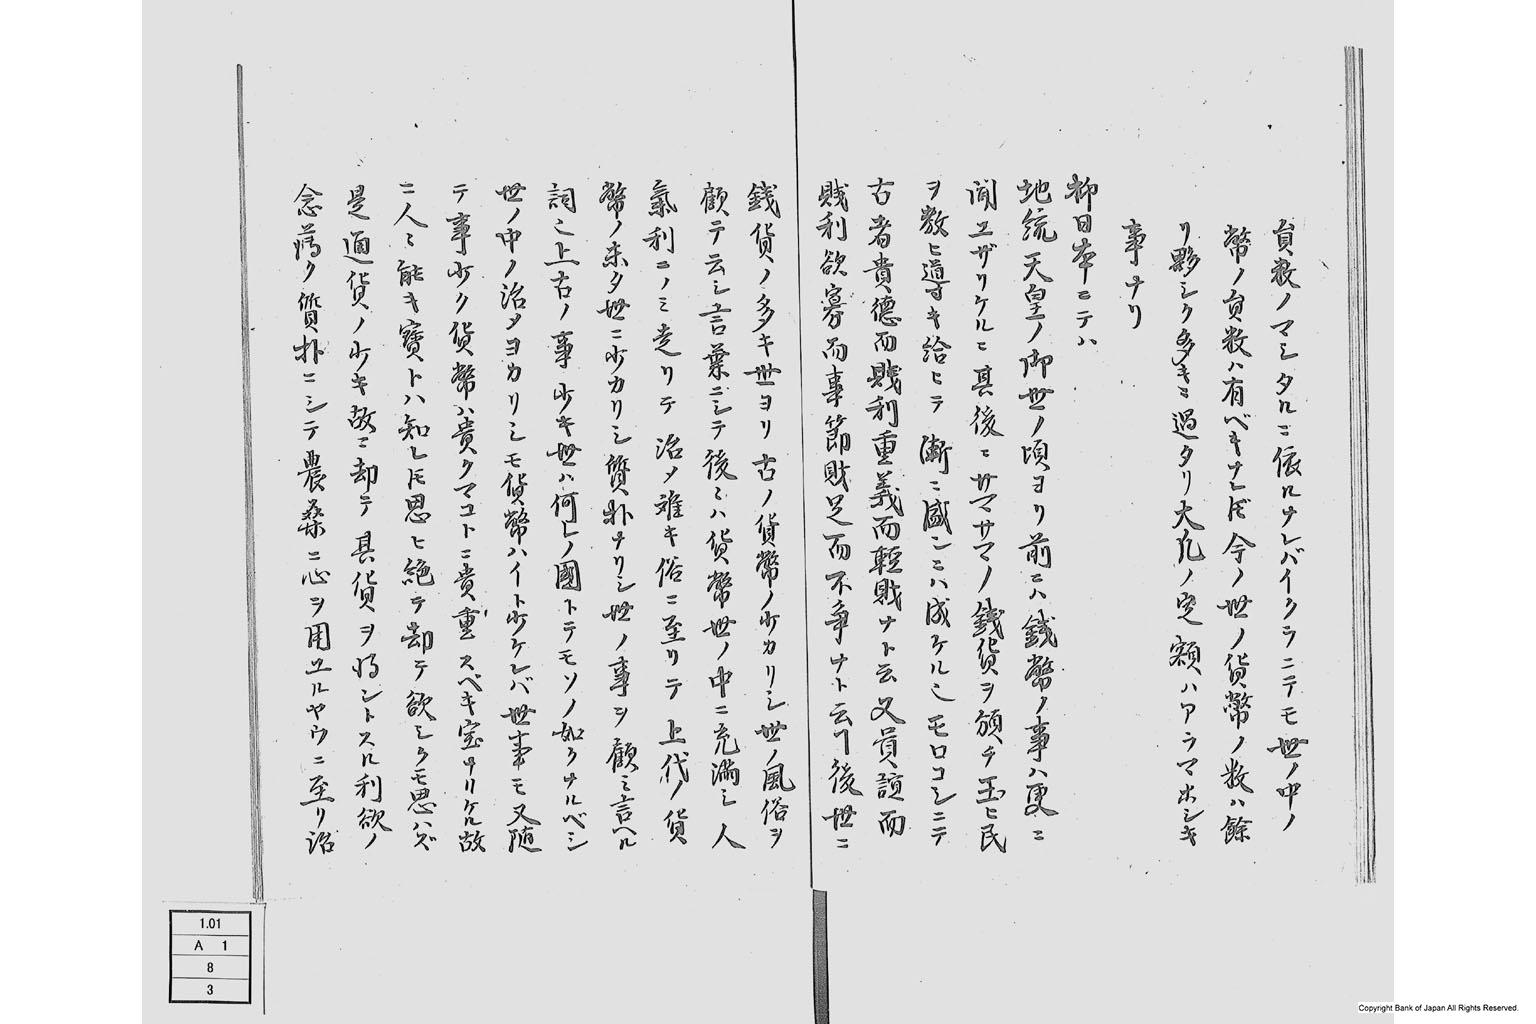 員数ノマシタルニ依ルナレバイクラニテモ世ノ中ノ
幣ノ員数ハ有ベキナレ𪜈今ノ世ノ貨幣ノ数ハ餘
リ夥シク多キニ過タリ大凡ノ定額ハアラマホシキ
事ナリ
抑日本ニテハ
持統天皇ノ御世ノ頃ヨリ前ニハ錢幣ノ事ハ更ニ
聞エザリケルニ其後ニサマサマノ錢貨ヲ頒チ玉ヒ民
ヲ教ヒ導キ給ヒテ漸ニ盛ンニハ成ケル也モロコシニテ
古者貴德而賤利重義而輕財ナト云又貢誼而
賤利欲寡而事節財足而不争ナト云ヿ後世ニ
錢貨ノ多キ世ヨリ古ノ貨幣ノ少カリシ世ノ風俗ヲ
顧テ云シ言葉ニシテ後々ハ貨幣世ノ中ニ充滿シ人
氣利ニノミ走リテ治メ難キ俗ニ至リテ上代ノ貨
幣ノ未タ世ニ少カリシ質朴ナリシ世ノ事ヲ顧ミ言ヘル
詞也上古ノ事少キ世ハ何レノ國トテモソノ如クナルベシ
世ノ中ノ治メヨカリシモ貨幣ハイト少ケレバ世事モ又随
テ事少ク貨幣ハ貴クマコトニ貴重スベキ宝ナリケル故
ニ人々能キ寶トハ知レ𪜈思ヒ絶テ却テ欲シクモ思ハズ
是通貨ノ少キ故ニ却テ其貨ヲ得ントスル利欲ノ
念薄ク質朴ニシテ農桑ニ心ヲ用ユルヤウニ至リ治
1.01
A 1
8
3
Copyright Bank of Japan All Rights Reserved.